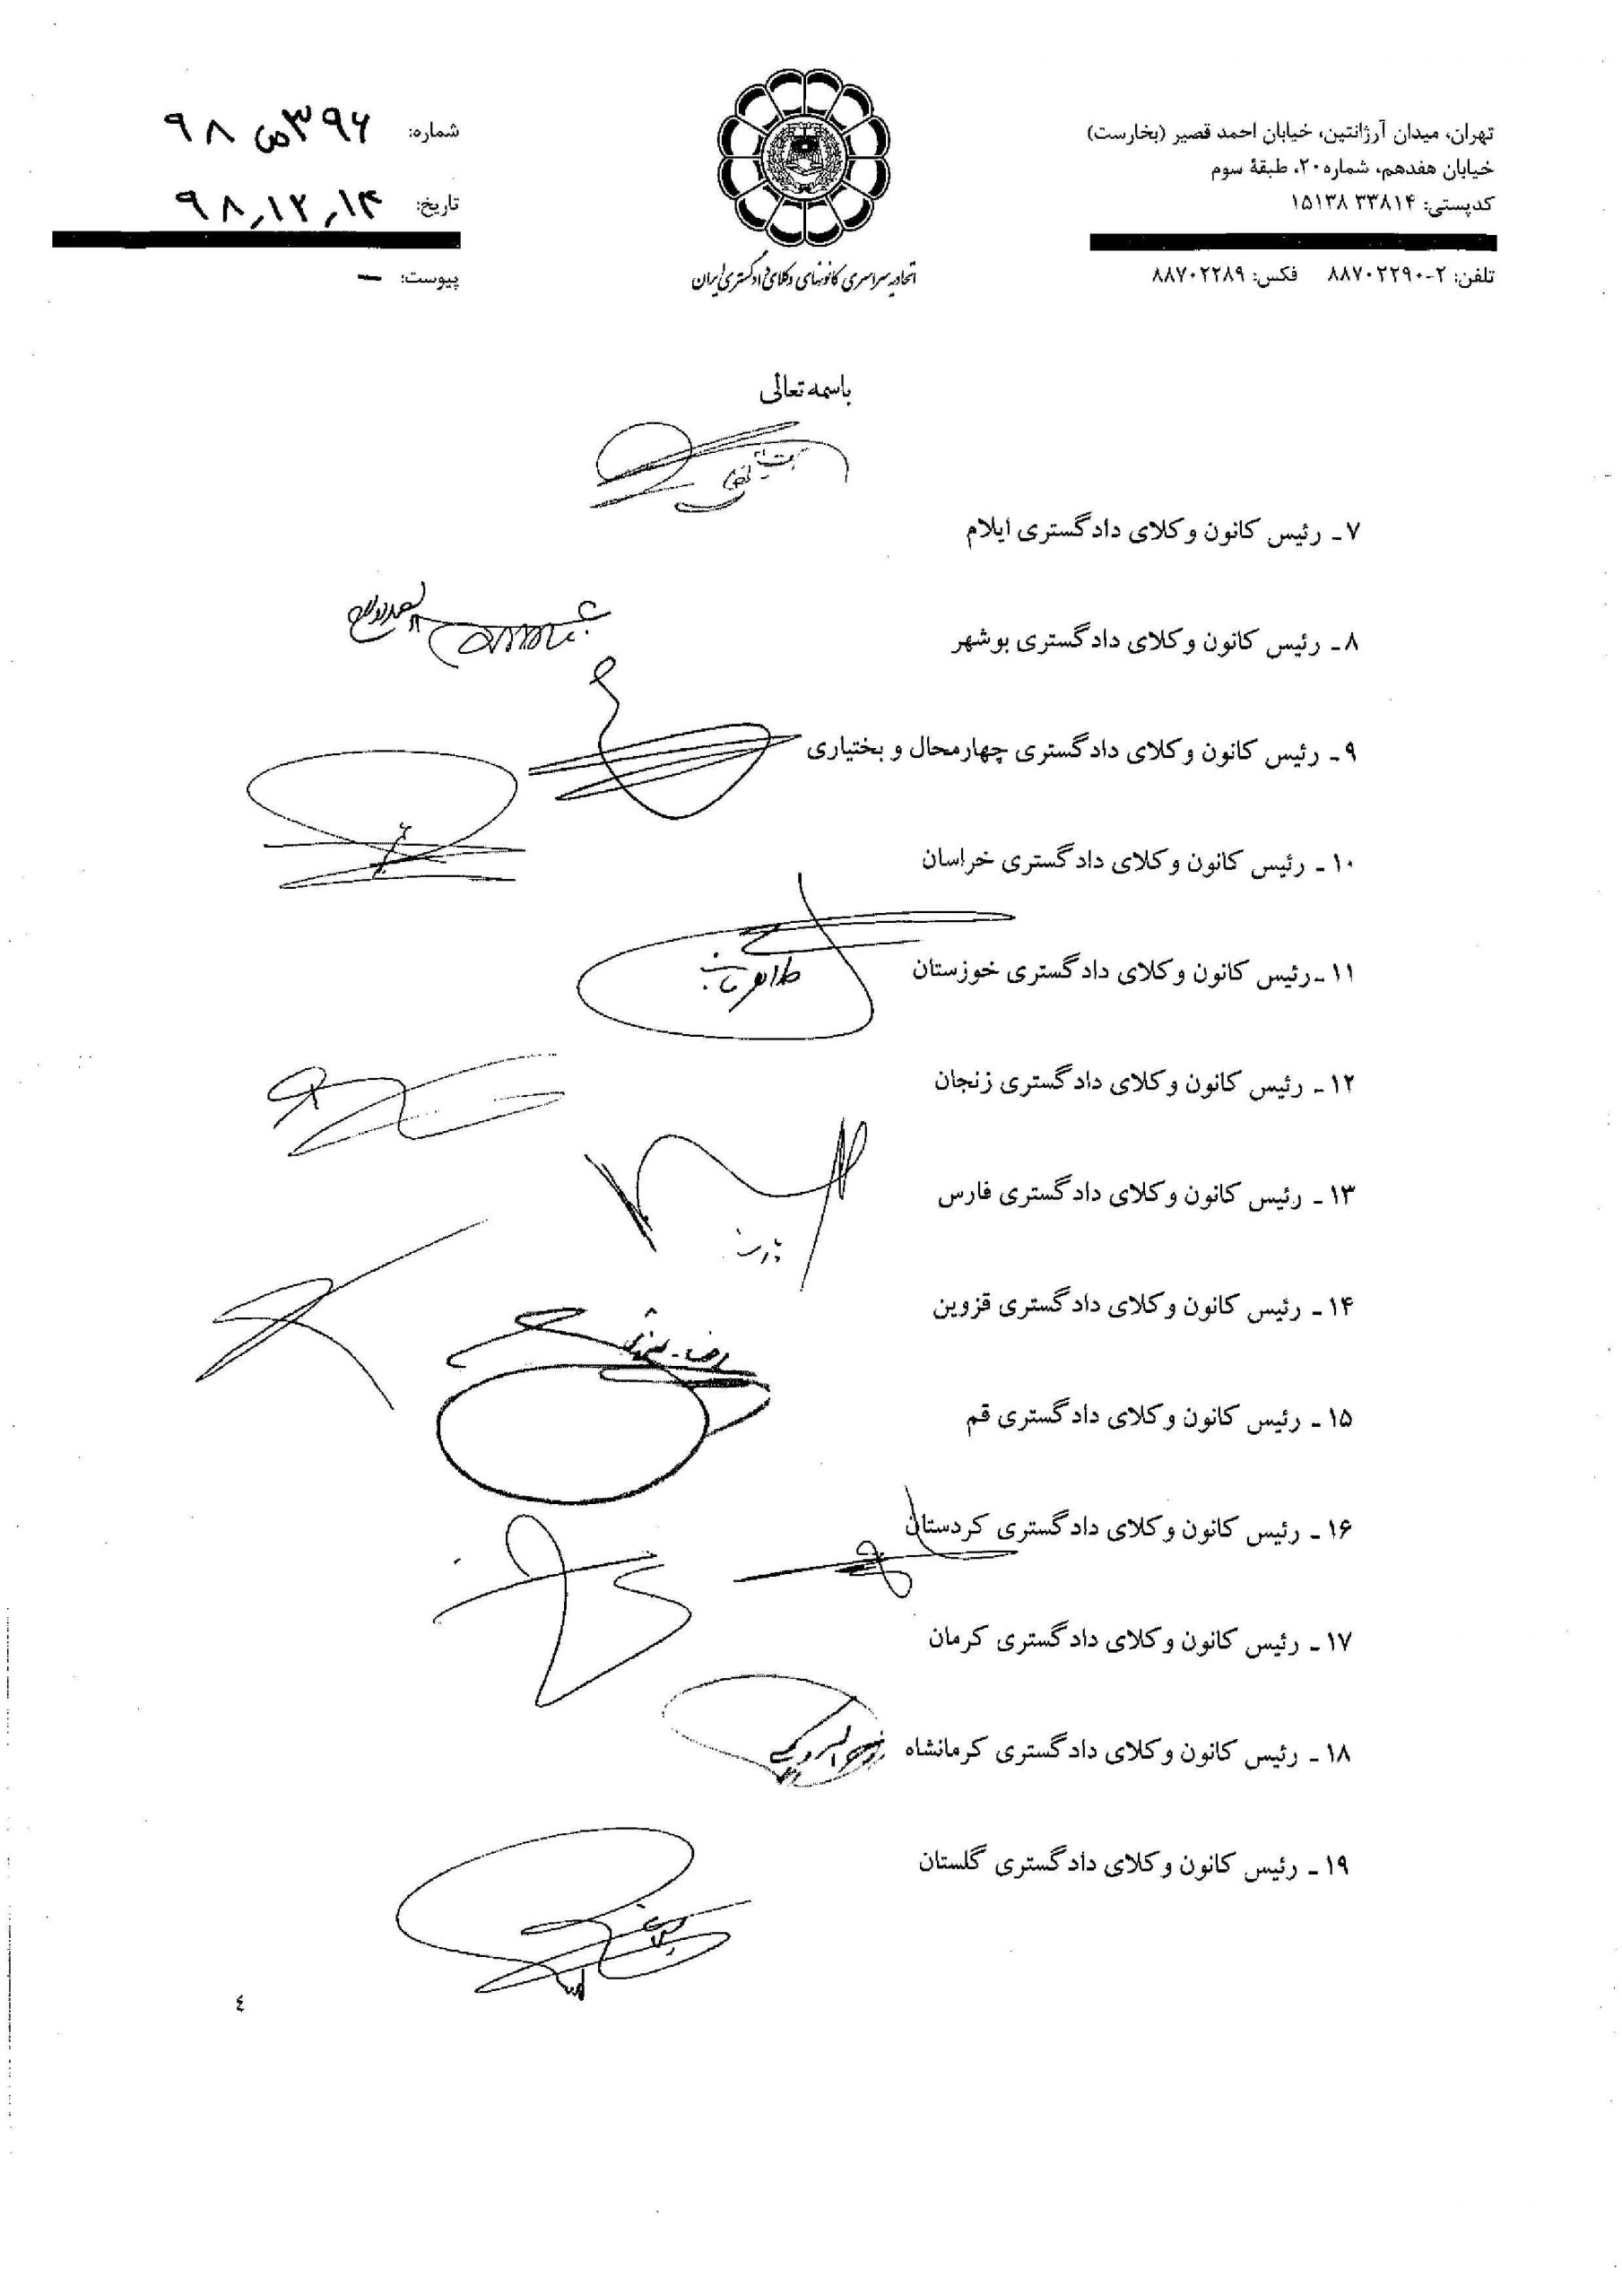 تهران، میدان آرژانتین، خیابان احمد قصیر (بخارست)
خیابان هفدهم، شماره ۲۰، طبقهٔ سوم
کدپستی: ۳۳۸۱۴ ۱۵۱۳۸
تلفن: ۲-۸۸۷۰۲۲۹۰ فکس: ۸۸۷۰۲۲۸۹
اتحادیه سراسری کانونهای وکلای دادگستری ایران
شماره: ۳۹۶ ص ۹۸
تاریخ: ۹۸,۱۲,۱۴
پیوست: —
باسمه تعالی
۷ـ رئیس کانون وکلای دادگستری ایلام
۸ـ رئیس کانون وکلای دادگستری بوشهر
۹ـ رئیس کانون وکلای دادگستری چهارمحال و بختیاری
۱۰ـ رئیس کانون وکلای دادگستری خراسان
۱۱ـ رئیس کانون وکلای دادگستری خوزستان
۱۲ـ رئیس کانون وکلای دادگستری زنجان
۱۳ـ رئیس کانون وکلای دادگستری فارس
۱۴ـ رئیس کانون وکلای دادگستری قزوین
۱۵ـ رئیس کانون وکلای دادگستری قم
۱۶ـ رئیس کانون وکلای دادگستری کردستان
۱۷ـ رئیس کانون وکلای دادگستری کرمان
۱۸ـ رئیس کانون وکلای دادگستری کرمانشاه
۱۹ـ رئیس کانون وکلای دادگستری گلستان
٤